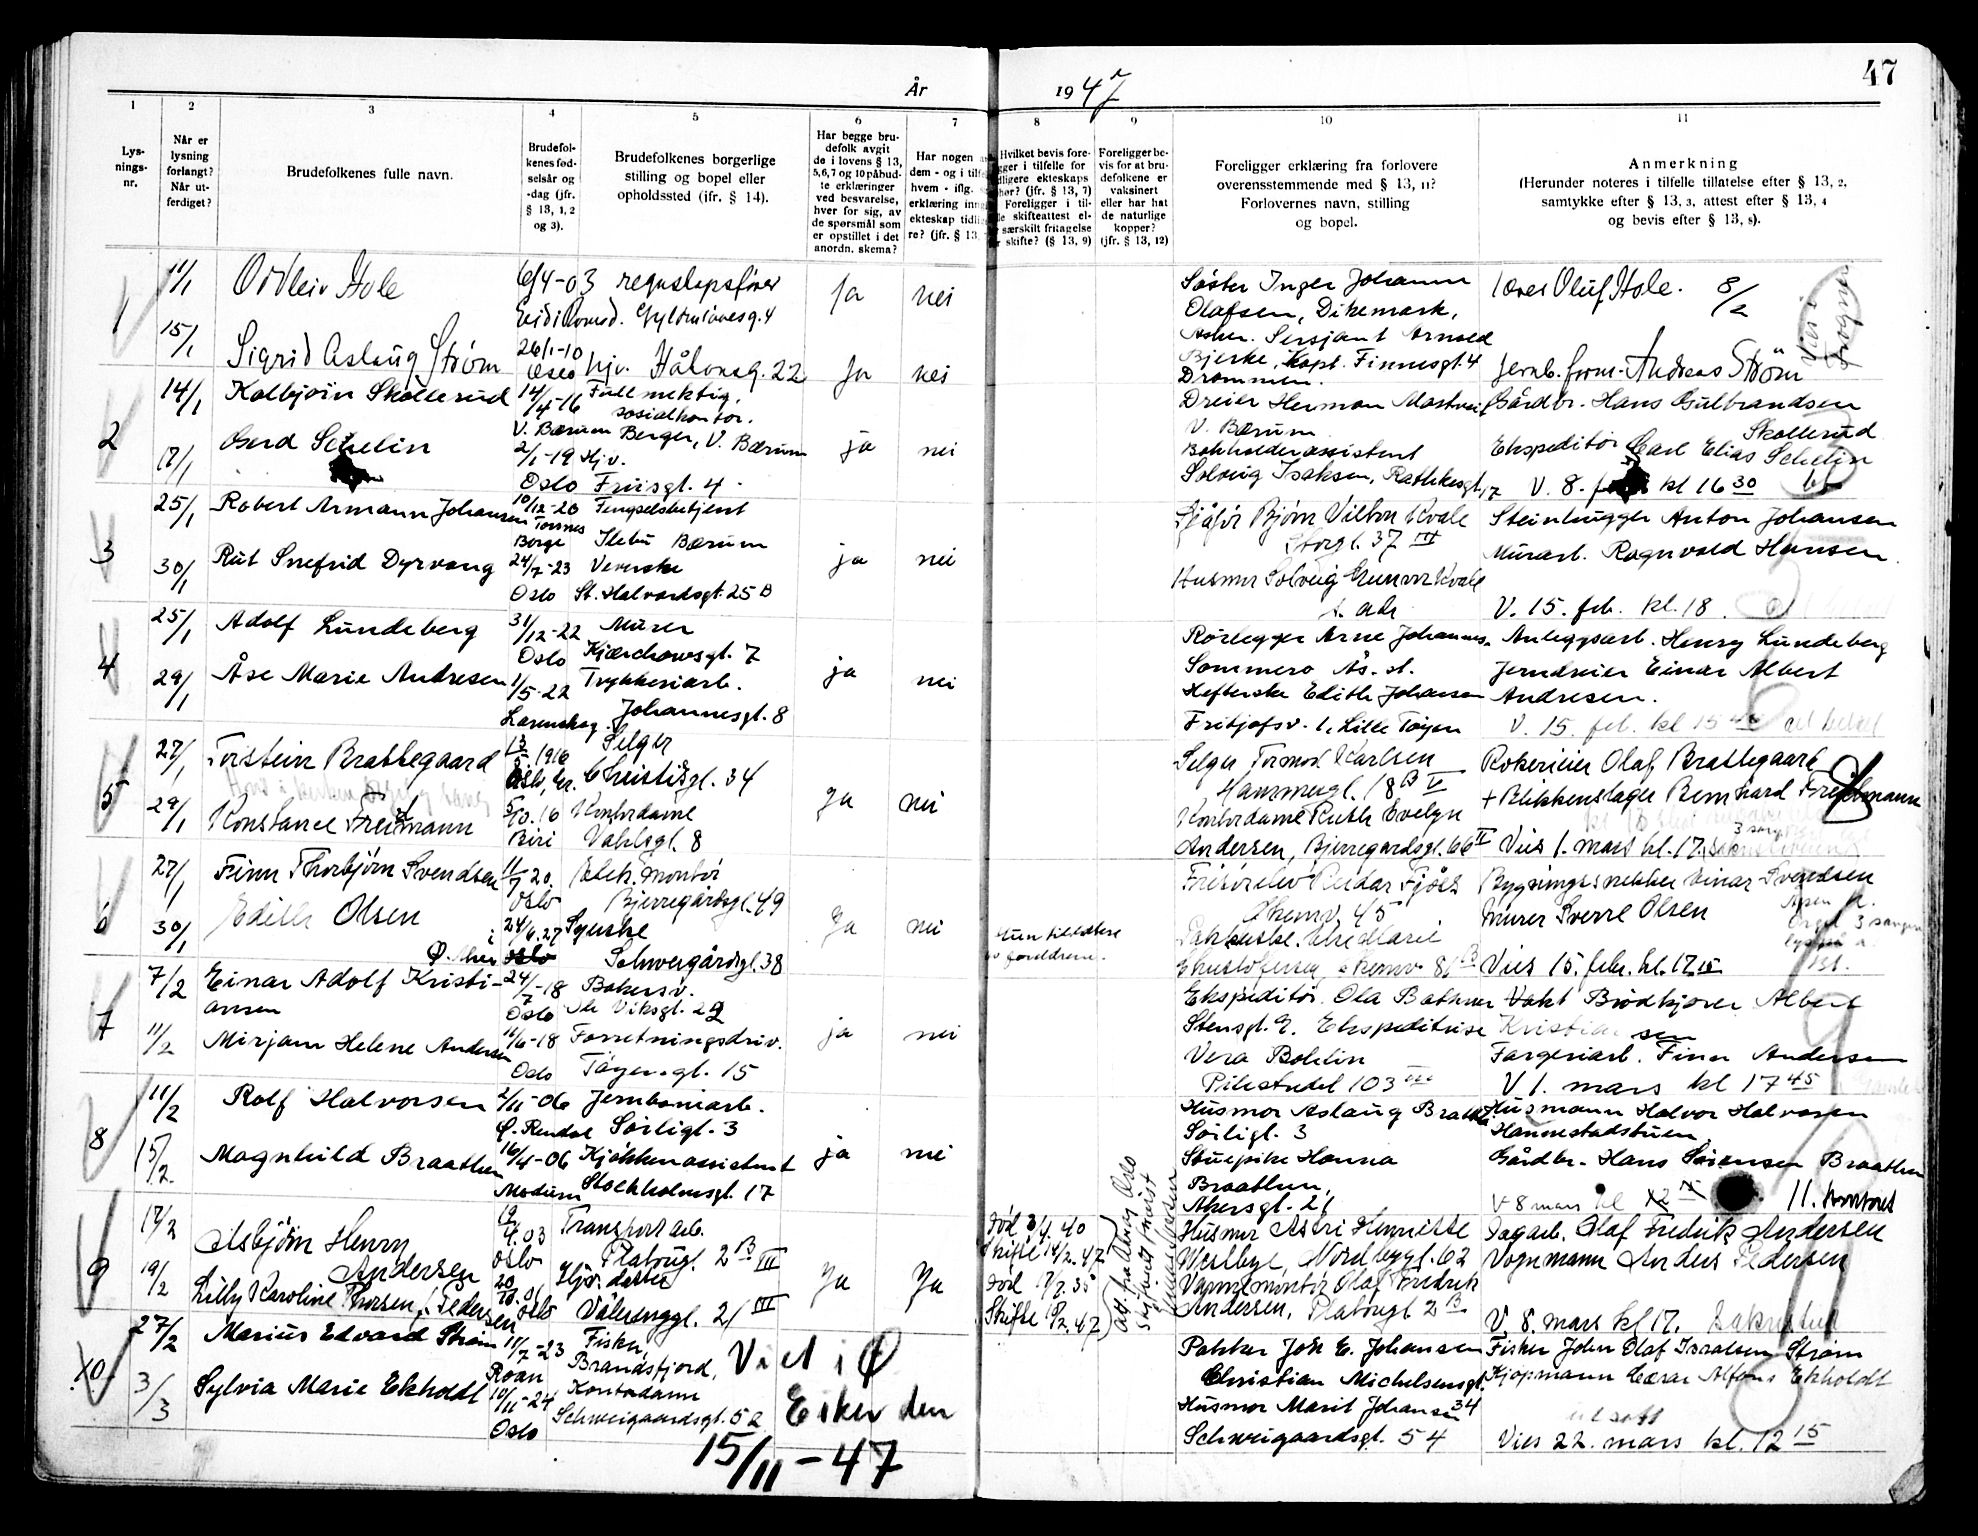 47
År 1947
1
2
3
4
5
6
7
8
9
10
11
Lys-
nings-
nr.
Når er
lysning
forlangt?
Når ut-
ferdiget?
Brudefolkenes fulle navn.
Brudefol-
kenes fød-
selsår og
-dag (jfr.
§ 13, 1, 2
og 3).
Brudefolkenes borgerlige
stilling og bopel eller
opholdssted (jfr. § 14).
Har begge bru-
defolk avgit
de i lovens § 13,
5, 6, 7 og 10 påbud-
te erklæringer
ved besvarelse,
hver for sig, av
de spørsmål som
er opstillet i det
anordn. skema?
Har nogen
dem - og i
hvem - iflg.
erklæring
ekteskap
re? (jfr. § 13
Hvilket bevis fore-
gger i tilfelle for
dligere ekteskaps
hør? (jfr. § 13, 7)
Foreligger i til-
le skifteattest el-
særskilt fritagelse
skifte? (§ 13, 9)
Foreligger be-
vis for at bru-
defolkene er
vaksinert
eller har hat
de naturlige
kopper?
(jfr. § 13, 12)
Foreligger erklæring fra forlovere
overensstemmende med § 13, 11?
Forlovernes navn, stilling
og bopel.
Anmerkning
(Herunder noteres i tilfelle tillatelse efter § 13, 2,
samtykke efter § 13, 3, attest efter § 13, 4
og bevis efter § 13, 8).
1
11/1 Oddleiv Hole 6/4-03 regnskapsfører ja nei
15/1 Sigrid Aslaug Strøm 26/1-10 Oslo hjv. Håkonsg. 22 ja nei
Søster Inger Johanne
Olafsen, Dikemark,
Asker. Sersjant Arnved
Bjerke, Kapt. Finnesgt. 4
Drammen.
Oluf Hole. 8/2
Andreas Strøm
Vies i Frogner
2
14/1 Kolbjørn Skollerud 14/4-16 Fullmektig,
sosialkontor.
V. Bærum Berger, V. Bærum
17/1 Gerd Schelin 2/1-19 Hjv.
Oslo Friisgt. 4.
ja nei
Dreier Herman
V. Bærum
Bokholderassistent
Solveig Isaksen, Rathkesgt. 17
Gårdbr. Hans Gulbrandsen
Skollerud
Ekspeditør Carl Elias Schelin
V. 8. kl 16 30
3
25/1 Robert Armann Johansen 10/12-20 Fengselsbetjent
Torsnes
Borge Ilebu Bærum
30/1 Rut Snefrid Dyrvang 24/7-23 Veverske
Oslo St. Halvardsgt. 25 B
ja nei
Sjåfør Bjørn Kvale
Storgt. 37 III
Husmor Solveig Gunvor Kvale
s. adr
Steinhugger Anton Johansen
Murarb. Ragnvald Hansen
V. 15. feb. kl. 18.
4
25/1 Adolf Lundeberg 31/12-22 Murer
Oslo Kjærschowsgt. 7
29/1 Åse Marie Andresen 1/5-22 Trykkeriarb.
Lørenskog Johannesgt. 8
ja nei
Rørlegger Arne Johannes.
Sommero Ås. st.
Hefterske Edith Johansen
Fritjofsv. 1, Lille Tøyen
Anleggsarb. Henry Lundeberg
Jerndreier Einar Albert
Andresen.
V. 15. feb. kl 15
5
27/1 Torstein Brattegaard 13/5. 1916 Selger
Christiesgt. 34
29/1 Konstance Freidmann 5/10. 16 Kontordame
Biri Vahlsgt. 8
ja nei
Selger Tormod Karlsen
Hammergt. 18 B IV
Kontordame Ruth Evelyn
Andersen, Bjerregårdsgt. 66 II
Røkerieier Olaf Brattegaard
+ Blikkenslager Bernhard Freidmann
Vies 1. mars kl. 17.
6
27/1 Finn Thorbjørn Svendsen 11/7 20. Elek. montør
Oslo Bjerregårdsgt. 49
30/1 Edith Olsen 24/6. 27 Syerske
Schweigårdsgt. 38
ja nei
Hun tillatelse
av foreldrene.
Reidar
Økernv. 45
Økernv. 81 B
Bygningssnekker Einar Svendsen
Murer Sverre Olsen
Orgel 3 sanger
Vies 15. febr. kl. 17 15
7
7/2 Einar Adolf Kristi-
ansen 24/7-18 Bakersv.
Oslo Viksgt. 22
11/2 Mirjam Helene Andersen 11/6-18 Forretningsdriv.
Oslo Tøyengt. 15
ja nei
Ekspeditør Ola Bakken
Stensgt. 9. Ekspeditrise
Vera Bohlin
Pilestredet 103
Vakt Brødkjører Albert
Kristiansen
Fargeriarb. Finn Andersen
V 1. mars kl 17 45
8
11/2 Rolf Halvorsen 2/11-06 Jernbanearb.
Ø. Rendal Sørligt. 3
15/2. Magnhild Braathen 16/4-06 Kjøkkenassistent
Modum Stockholmsgt. 17
ja nei
Husmor Aslaug
Sørligt. 3
Stuepike Hanna
Braathen,
Akersgt. 21
Husmann Halvor Halvorsen
Hannestadstuen,
Gårdbr. Hans Sørensen Braathen
V 8 mars kl 11. kontoret
9
17/2 Asbjørn Henry
Andersen 4. 03 Transportarb.
Oslo Platougt. 2 B III
19/2 Lilly Karoline Thorsen, f. Pedersen
Oslo Vålerenggt. 21 III
Ja Ja
Skifte 14/2. 47
Skifte
Husmor Astri Henriette
Westbye, Nordbygt. 62
Varmemontør Olaf Fredrik
Andersen, Platougt. 2 B
Dagarb. Olaf Fredrik Andersen
Vognmann Anders Pedersen
V. 8. mars kl 17. Sakristiet
10
27/2 Marius Edvard Strøm 11/7-23 Fisker,
Roan Brandsfjord,
3/3 Sylvia Marie Ekholdt 10/11-24 Kontordame
Oslo Schweigaardsgt. 52
Viet i Ø
Eiker den
15/11-47
Pakker Joh E. Johansen
Christian Michelsensgt.
34
Husmor Marit Johansen
Schweigaardsgt. 54
Fisker John Olaf Israelsen Strøm
Kjøpmann Alfons Ekholdt
utsatt
Vies 22. mars kl. 12 15